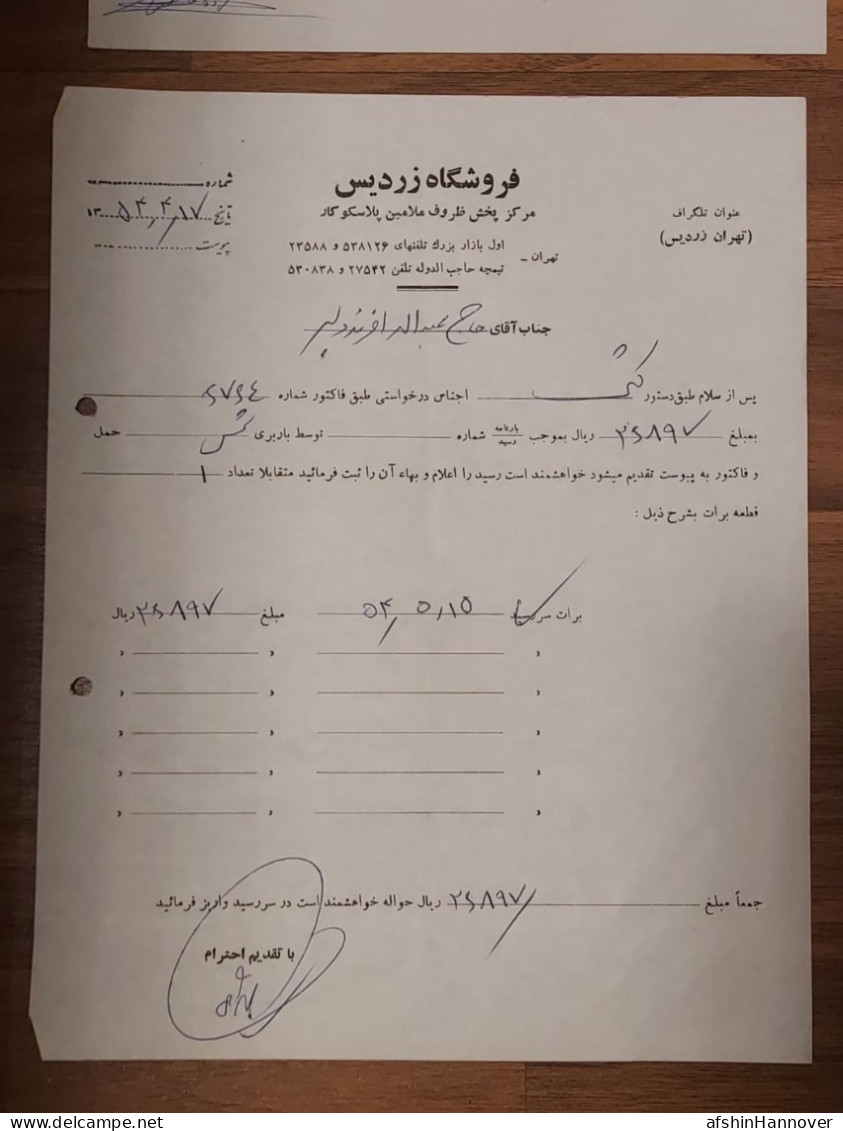 فروشگاه زردیس
مرکز پخش ظروف ملامین پلاسکوکار
تهران – اول بازار بزرگ تلفنهای ۵۳۸۱۲۶ و ۲۳۵۸۸
تیمچه حاجب الدوله تلفن ۲۷۵۴۲ و ۵۳۰۸۳۸
عنوان تلگراف
(تهران زردیس)
شماره
تاریخ ۱۳۵۴/۴/۱۷
پیوست
جناب آقای حاج
پس از سلام طبق دستور اجناس درخواستی طبق فاکتور شماره
بمبلغ ۲۶۸۹۷ ریال بموجب بارنامه رسید شماره توسط باربری حمل
و فاکتور به پیوست تقدیم میشود خواهشمند است رسید را اعلام و بهاء آن را ثبت فرمائید متقابلا تعداد ۱
قطعه برات بشرح ذیل :
برات سررسید ۵۴/۵/۱۵ مبلغ ۲۶۸۹۷ ریال
« « «
« « «
« « «
« « «
« « «
جمعاً مبلغ ۲۶۸۹۷ ریال حواله خواهشمند است در سررسید واریز فرمائید
با تقدیم احترام
delcampe.net
afshinHannover